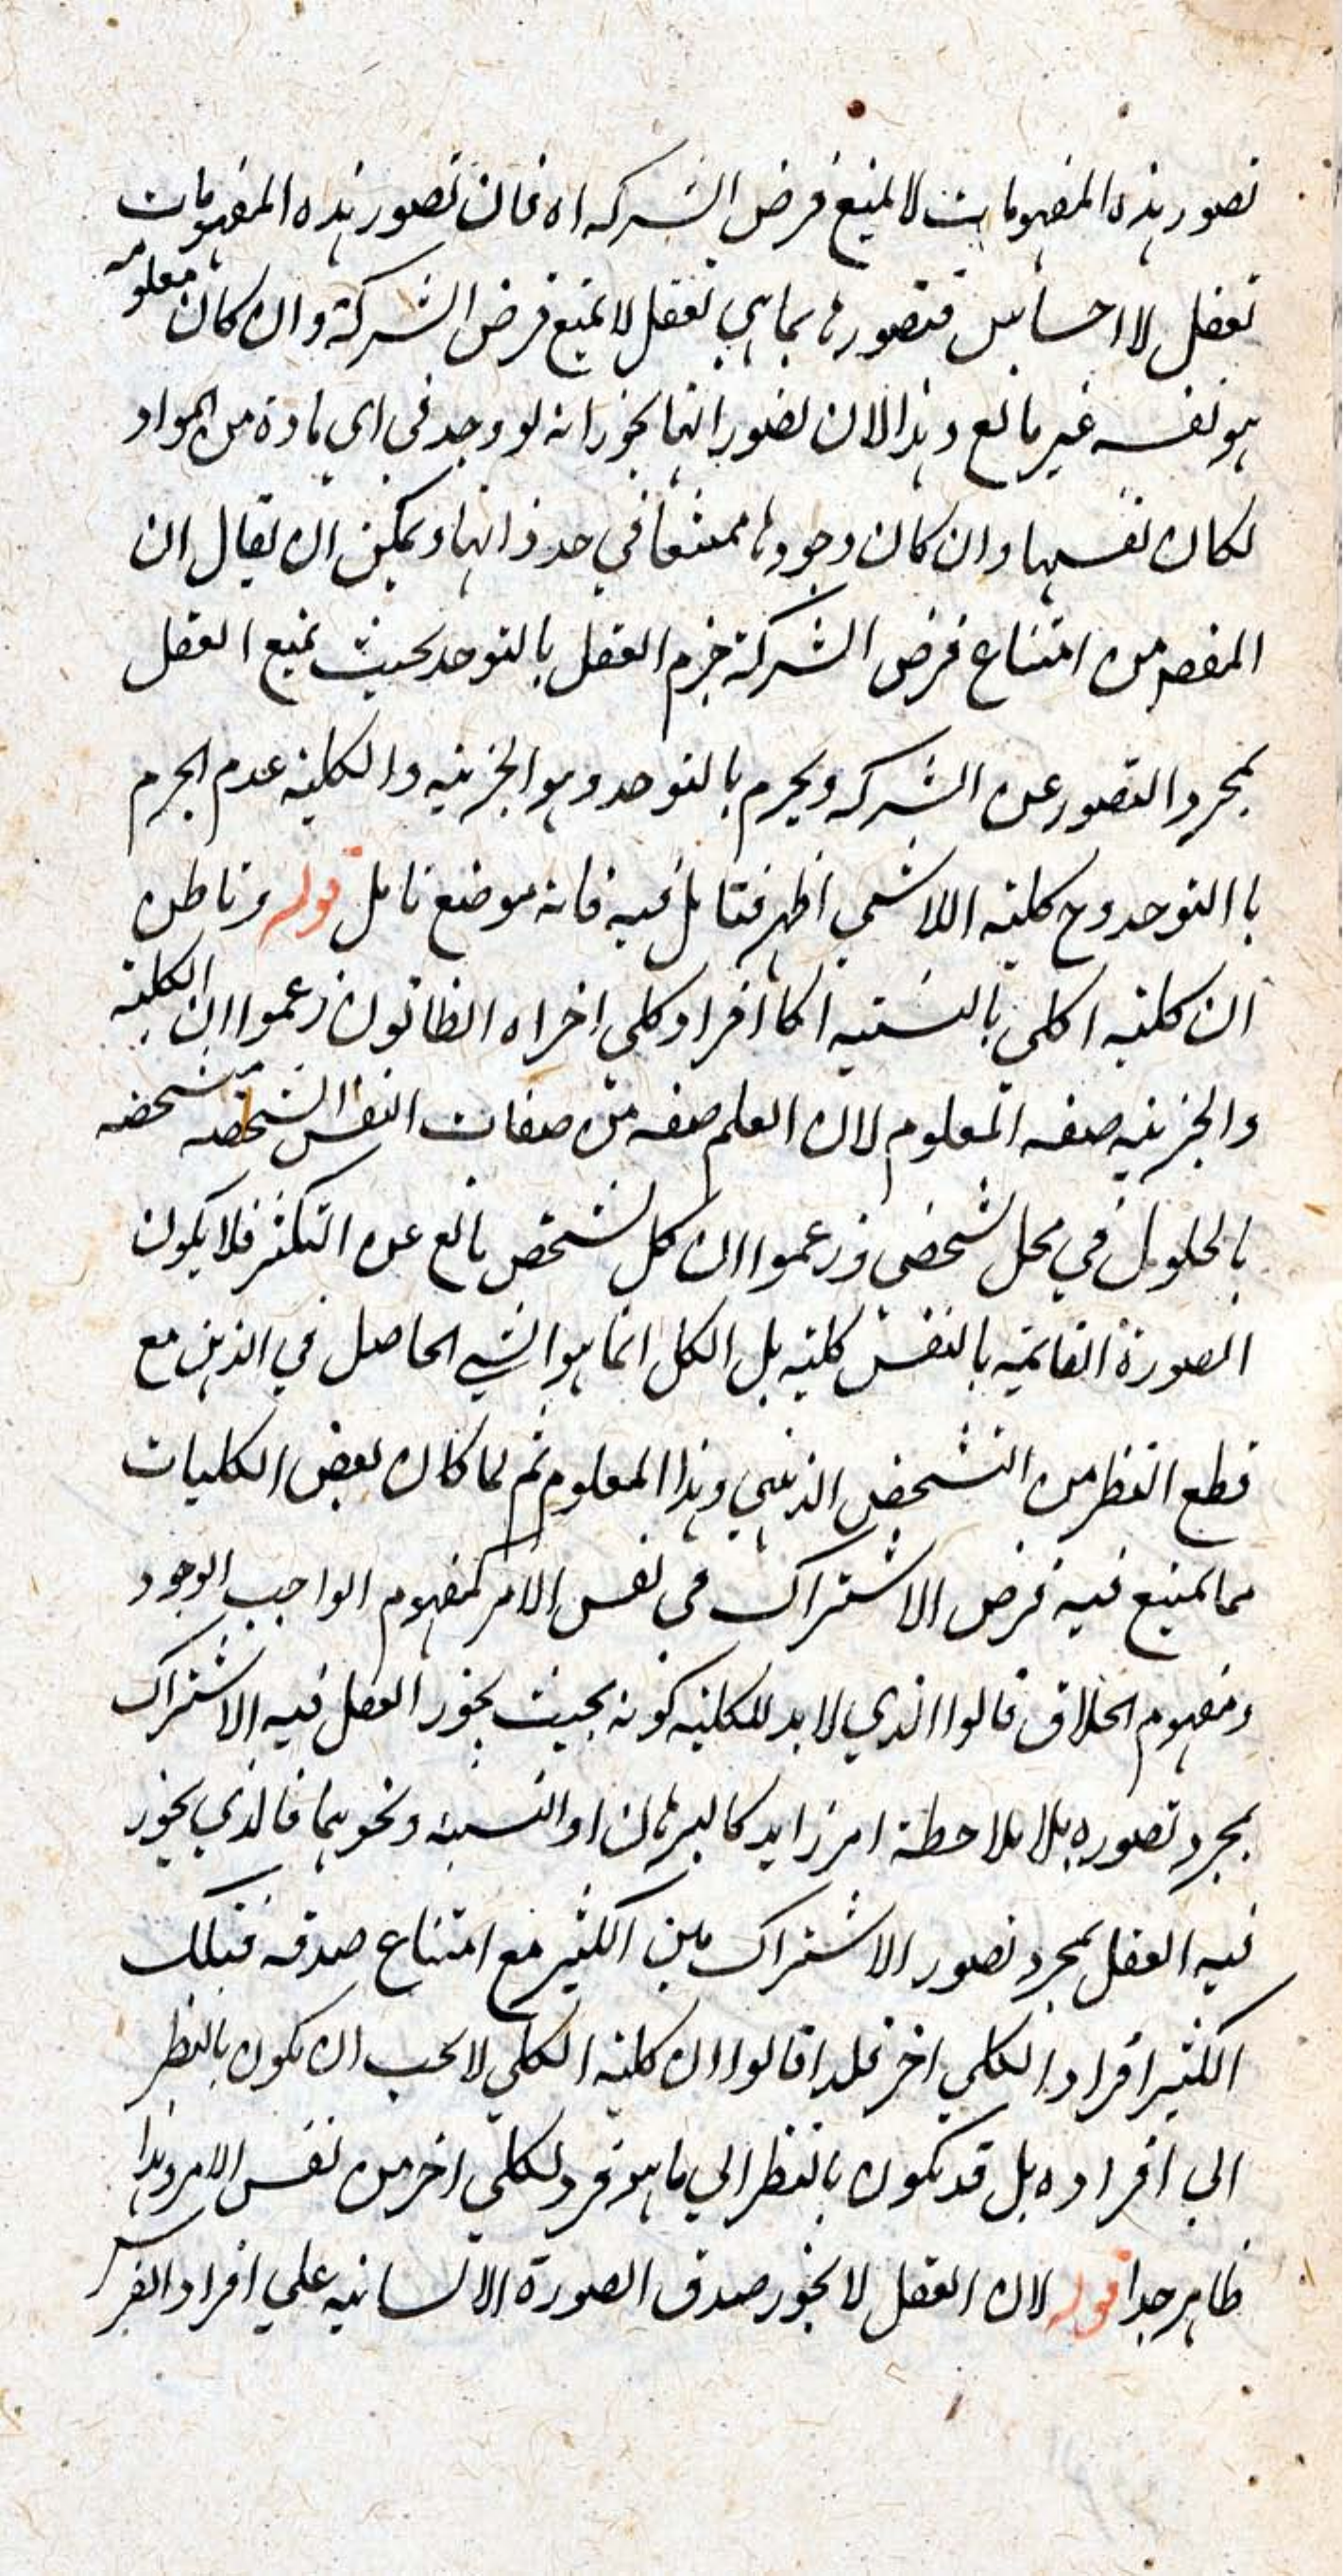 تصور هذه المفهومات لا يمنع فرض الشركه اه فان تصور هذه المفهومات
تعقل لا احساس فتصورها بما هي تعقل لا يمنع فرض الشركة وان كان معلومه
هو نفسه غير مانع وهذا لان تصور انها يجوز انه لو وجد في اي مادة من المواد
لكان نفسها وان كان وجودها ممتنعا في حد ذاتها ويمكن ان يقال ان
المقصد من امتناع فرض الشركة جزم العقل بالتوحد بحيث يمنع العقل
بمجرد التصور عن الشركه ويجزم بالتوحد وهو الجزئيه والكليه عدم الجزم
با التوحد وح كليه اللاشي اظهر فتامل فيه فانه موضع تامل قوله وناظن
ان كليه اكلي بالنسبه اكا افراد كلي اخر اه الظانون زعموا ان الكليه
والجزئيه صفه المعلوم لان العلم صفه من صفات النفس الشخصه متشخصه
بالحلول في محل شخصي وزعموا ان كل شخص مانع عن التكثر فلا يكون
الصورة القائمه بالنفس كليه بل الكل انما هو الشي الحاصل في الذهن مع
قطع النظر من التشخص الذهني وهذا المعلوم ثم لما كان بعض الكليات
مما يمنع فيه فرض الاشتراك في نفس الامر كمفهوم الواجب الوجود
ومفهوم الخلاق قالوا الذي لا بد للكليه كونه بحيث يجوز العقل فيه الاشتراك
بمجرد تصوره بلا ملاحظة امر زايد كالبرهان او النسبه ونحوهما فالذي يجوز
فيه العقل بمجرد تصور الاشتراك بين الكثير مع امتناع صدقه فتلك
الكثير افراد الكلي اخر فلذا قالوا ان كليه الكلي لا يجب ان يكون بالنظر
الي افراده بل قد يكون بالنظر الي ما هو فرد لكلي اخر من نفس الامر وهذا
ظاهر جدا قوله لان العقل لا يجوز صدق الصورة الانسانيه علي افراد الفرس